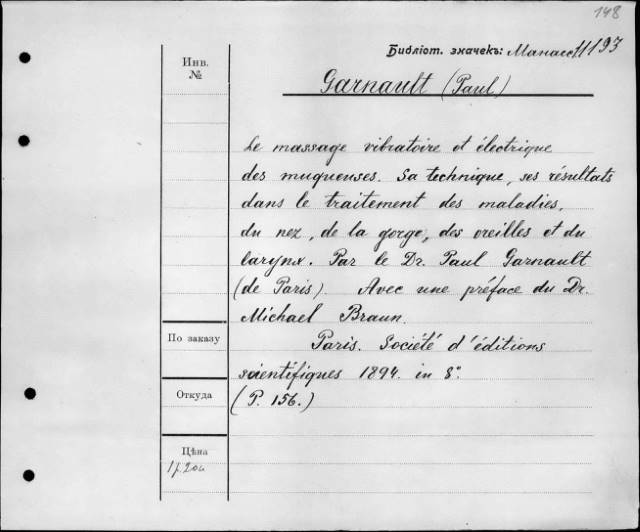 148
Библіот. значекъ: Манасс 11193
Инв.
№
Garnault (Paul)
Le massage vibratoire et électrique
des muqueuses. Sa technique, ses résultats
dans le traitement des maladies,
du nez, de la gorge, des oreilles et du
larynx. Par le Dr. Paul Garnault
(de Paris) Avec une préface du Dr.
Michael Braun.
По заказу
Paris. Société d'éditions
scientifiques 1894. in 8°.
Откуда
(P. 156.)
Цѣна